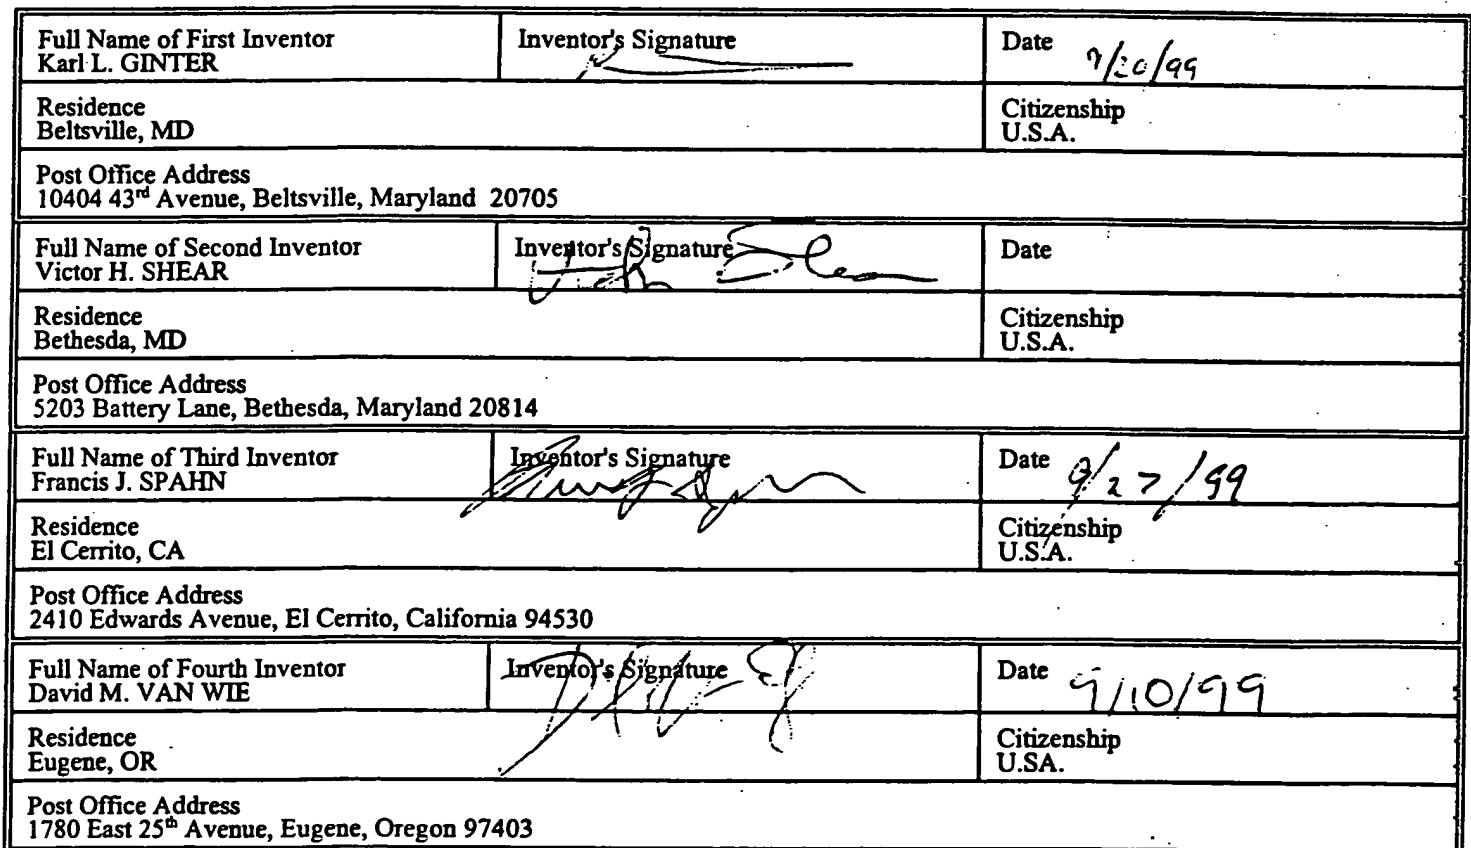 Full Name of First Inventor
Karl L. GINTER
Inventor's Signature
Date 9/20/99
Residence
Beltsville, MD
Citizenship
U.S.A.
Post Office Address
10404 43rd Avenue, Beltsville, Maryland 20705
Full Name of Second Inventor
Victor H. SHEAR
Inventor's Signature
Date
Residence
Bethesda, MD
Citizenship
U.S.A.
Post Office Address
5203 Battery Lane, Bethesda, Maryland 20814
Full Name of Third Inventor
Francis J. SPAHN
Inventor's Signature
Date 9/27/99
Residence
El Cerrito, CA
Citizenship
U.S.A.
Post Office Address
2410 Edwards Avenue, El Cerrito, California 94530
Full Name of Fourth Inventor
David M. VAN WIE
Inventor's Signature
Date 9/10/99
Residence
Eugene, OR
Citizenship
U.SA.
Post Office Address
1780 East 25th Avenue, Eugene, Oregon 97403